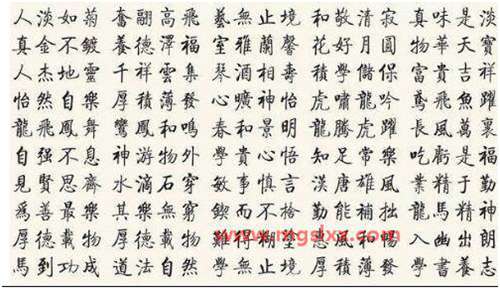 人淡如菊 奮翮高飛 藝無止境 和敬清寂 真味是淡
真金不鍍 養德澤福 室雅蘭馨 花好月圓 物華天寶
人杰地靈 千祥雲集 琴酒相壽 學儲保 富貴吉祥
怡然自樂 厚積薄發 心曠神怡 虎嘯龍吟 鳶飛魚躍
龍飛鳳舞 鸞鳳和鳴 春和景明 龍騰虎躍 長風萬裏
自强不息 神游物外 學貴心悟 知足常樂 吃虧是福
見賢思齊 水滴石穿 敏事慎言 漢唐雄風 業精于勤
爲善最樂 其樂無窮 鍥而不捨 勤能補拙 龍馬精神
厚德載物 厚德載物 惠風和暢 入幽出朗
馬到功成 道法自然 學無止境 厚積薄發 學書養志